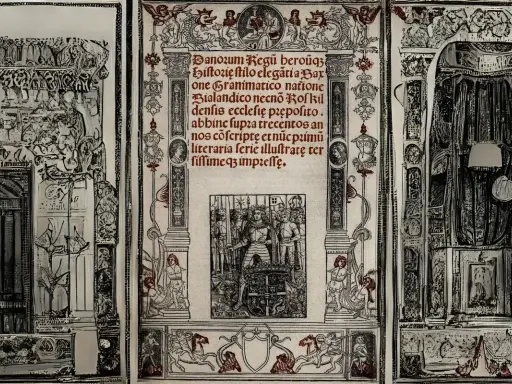 Danorum Regū heroūq;
Historię stilo elegāti a Sax
one Grammatico natione
Sialandico necnō Roskil
densis ecclesię pręposito,
abhinc supra trecentos an
nos cōscriptę et nūc primū
literaria serie illustratę ter
sissimeq; impressę.